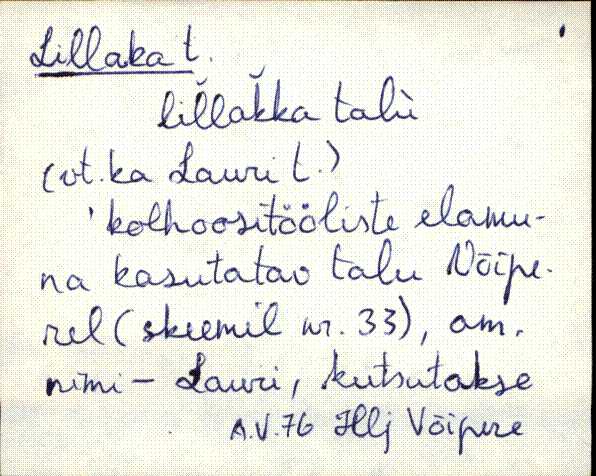 Lillaka t.
lil̆lak̆ka talù
(vt. ka Lauri t.)
'kolhoositööliste elamu-
na kasutatav talu Võipe-
rel (skeemil nr. 33), am.
nimi – Lauri, kutsutakse
A.V. 76 Hlj Võipere